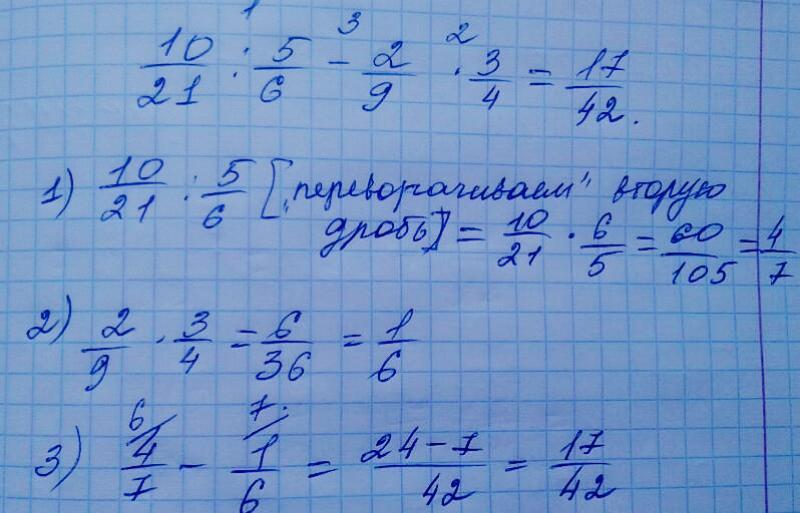 1 3 2
10/21 : 5/6 - 2/9 · 3/4 = 17/42.
1) 10/21 : 5/6 [„переворачиваем" вторую
дробь] = 10/21 · 6/5 = 60/105 = 4/7
2) 2/9 · 3/4 = 6/36 = 1/6
6/ 7/
3) 4/7 - 1/6 = 24-7/42 = 17/42